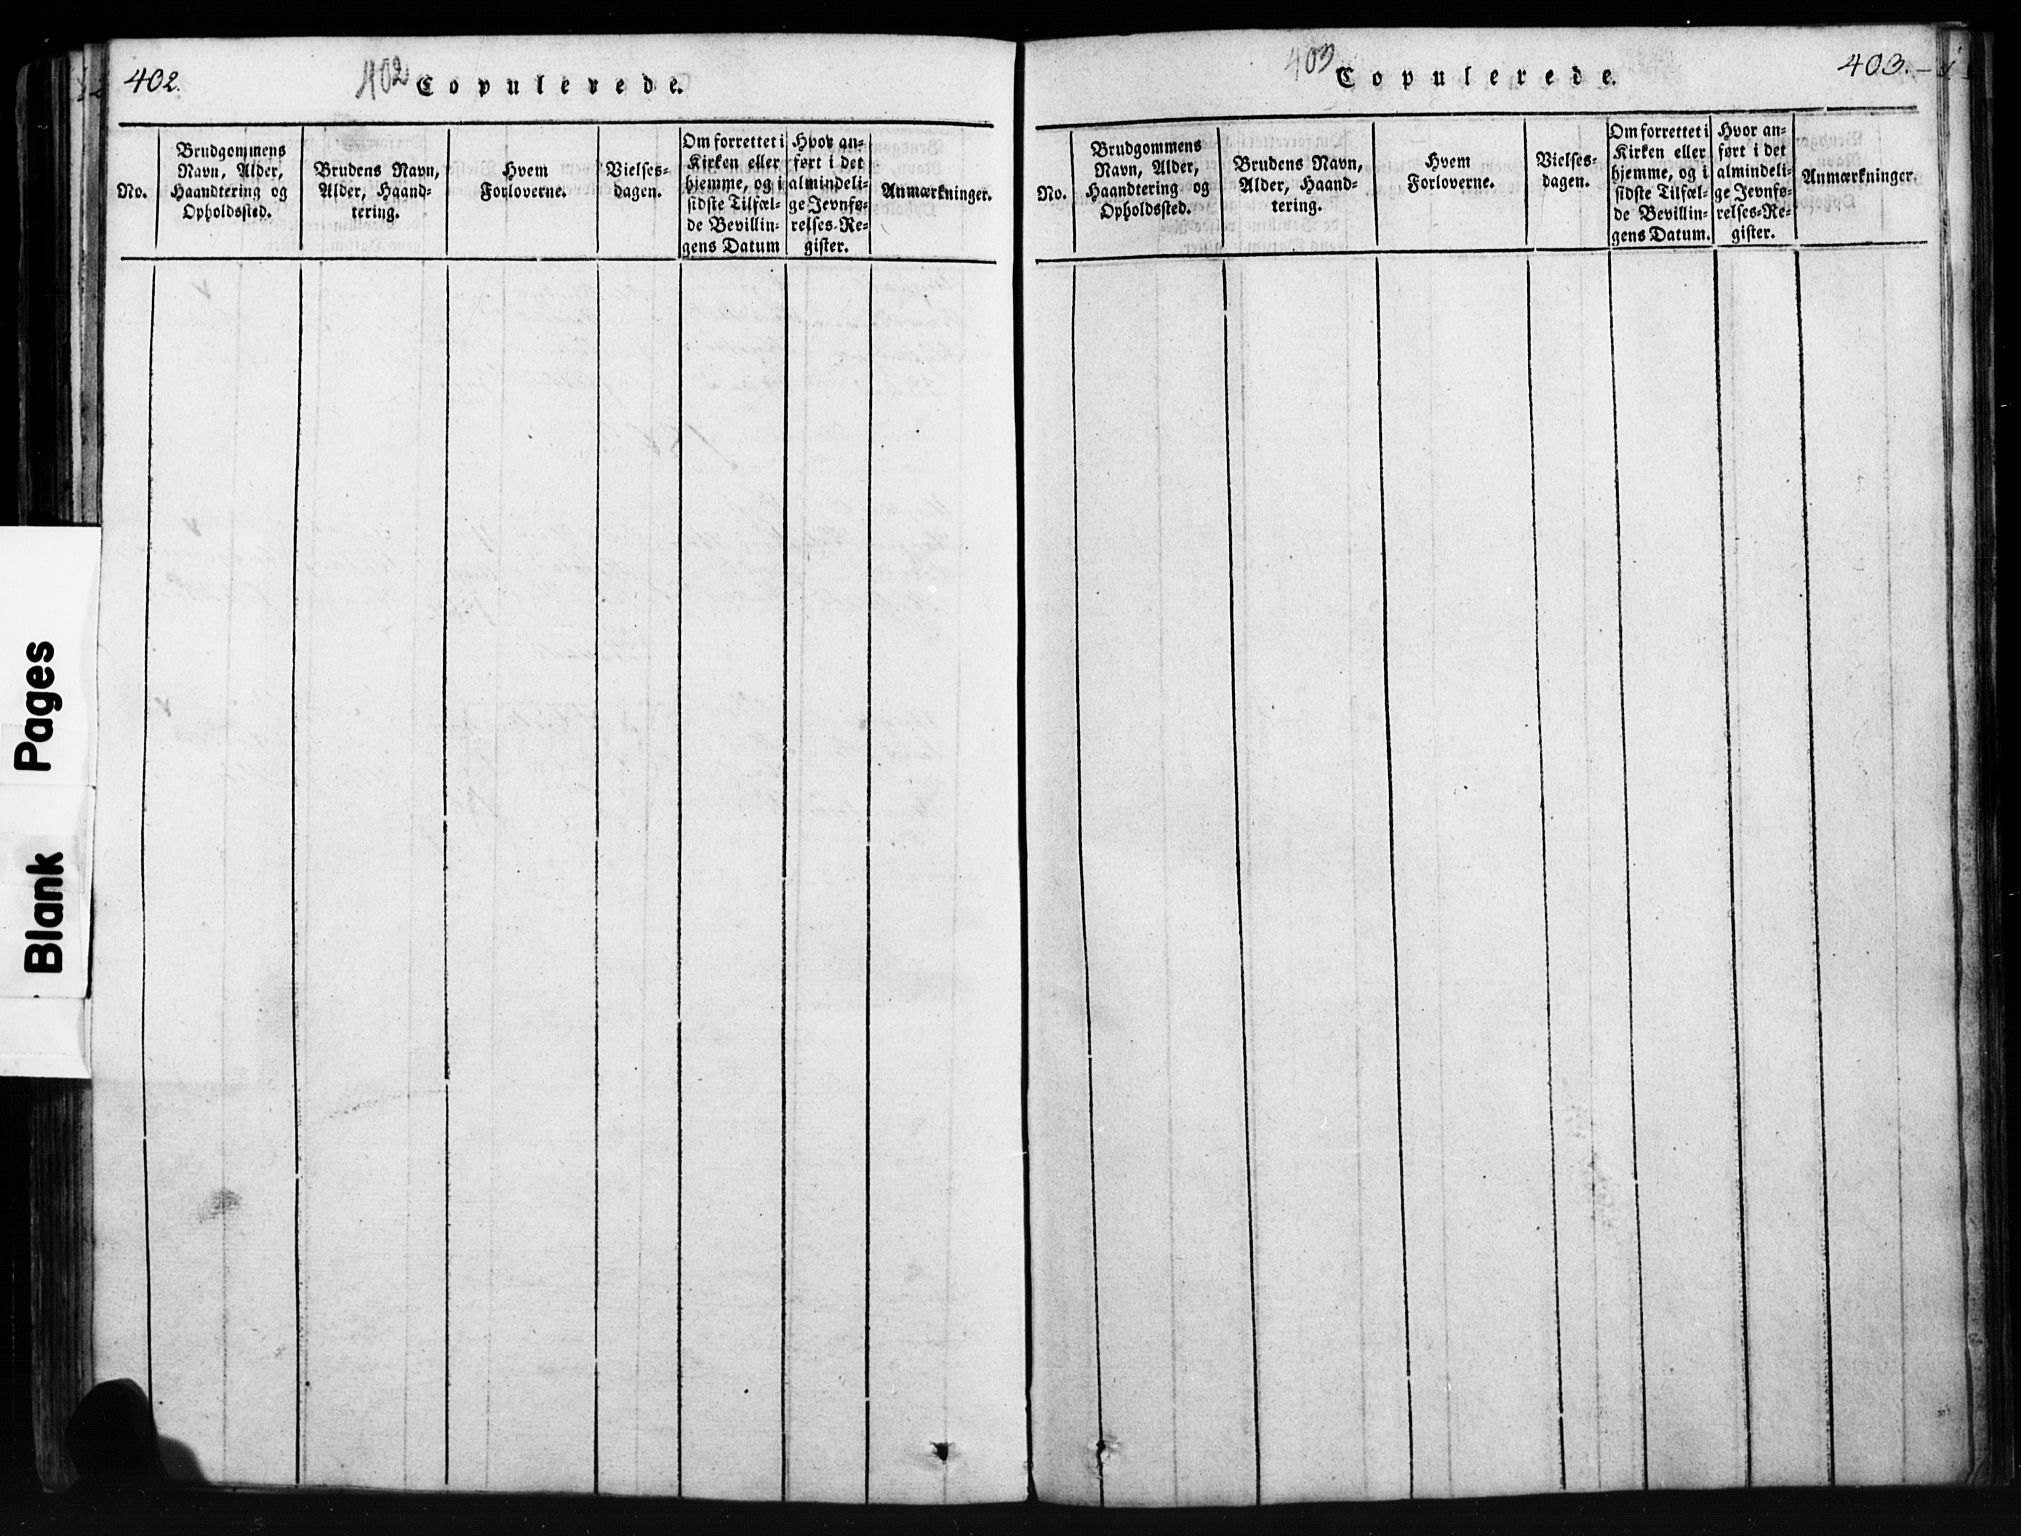 402.
402
Copulerede.
No.
Brudgommens
Navn, Alder,
Haandtering og
Opholdssted.
Brudens Navn,
Alder, Haand-
tering.
Hvem
Forloverne.
Vielses-
dagen.
Om forrettet i
Kirken eller
hjemme, og i
sidste Tilfæl-
de Bevillin-
gens Datum
Hvor an-
ført i det
almindeli-
ge Jevnfø-
relses-Re-
gister.
Anmærkninger.
403
Copulerede.
403.
No.
Brudgommens
Navn, Alder,
Haandtering og
Opholdssted.
Brudens Navn,
Alder, Haand-
tering.
Hvem
Forloverne.
Vielses-
dagen.
Om forrettet i
Kirken eller
hjemme, og i
sidste Tilfæl-
de Bevillin-
gens Datum.
Hvor an-
ført i det
almindeli-
ge Jevnfø-
relses-Re-
gister.
Anmærkninger.
Blank Pages